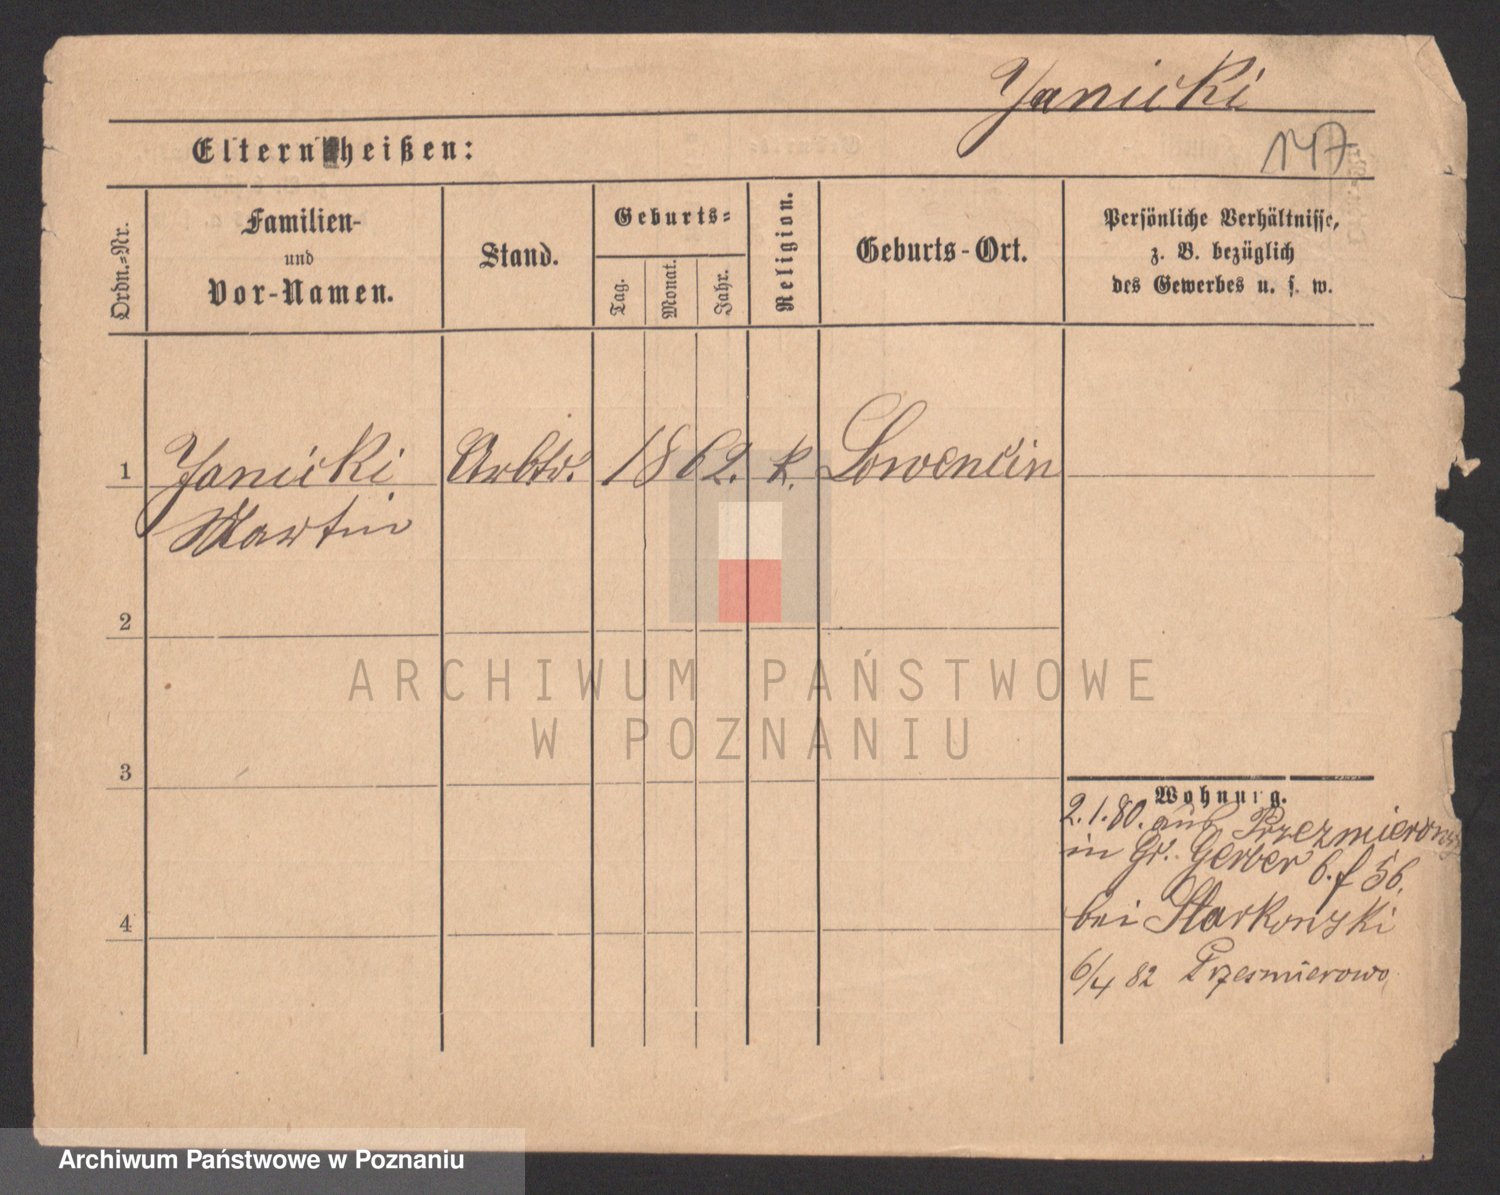 Janicki
147
Eltern heißen:
Ordn.-Nr.
Familien-
und
Vor-Namen.
Stand.
Geburts-
Tag.
Monat.
Jahr.
Religion.
Geburts-Ort.
Persönliche Verhältnisse,
z. B. bezüglich
des Gewerbes u. s. w.
1 Janicki Arbtr. 1862. k. Lowencin
Martin
2
3
4
Wohnung.
2.1.80. aus Przezmierowo
in Gr. Gerber 6. f 56.
bei Starkowski
6/4 82 Przesmierowo
ARCHIWUM PAŃSTWOWE
W POZNANIU
Archiwum Państwowe w Poznaniu